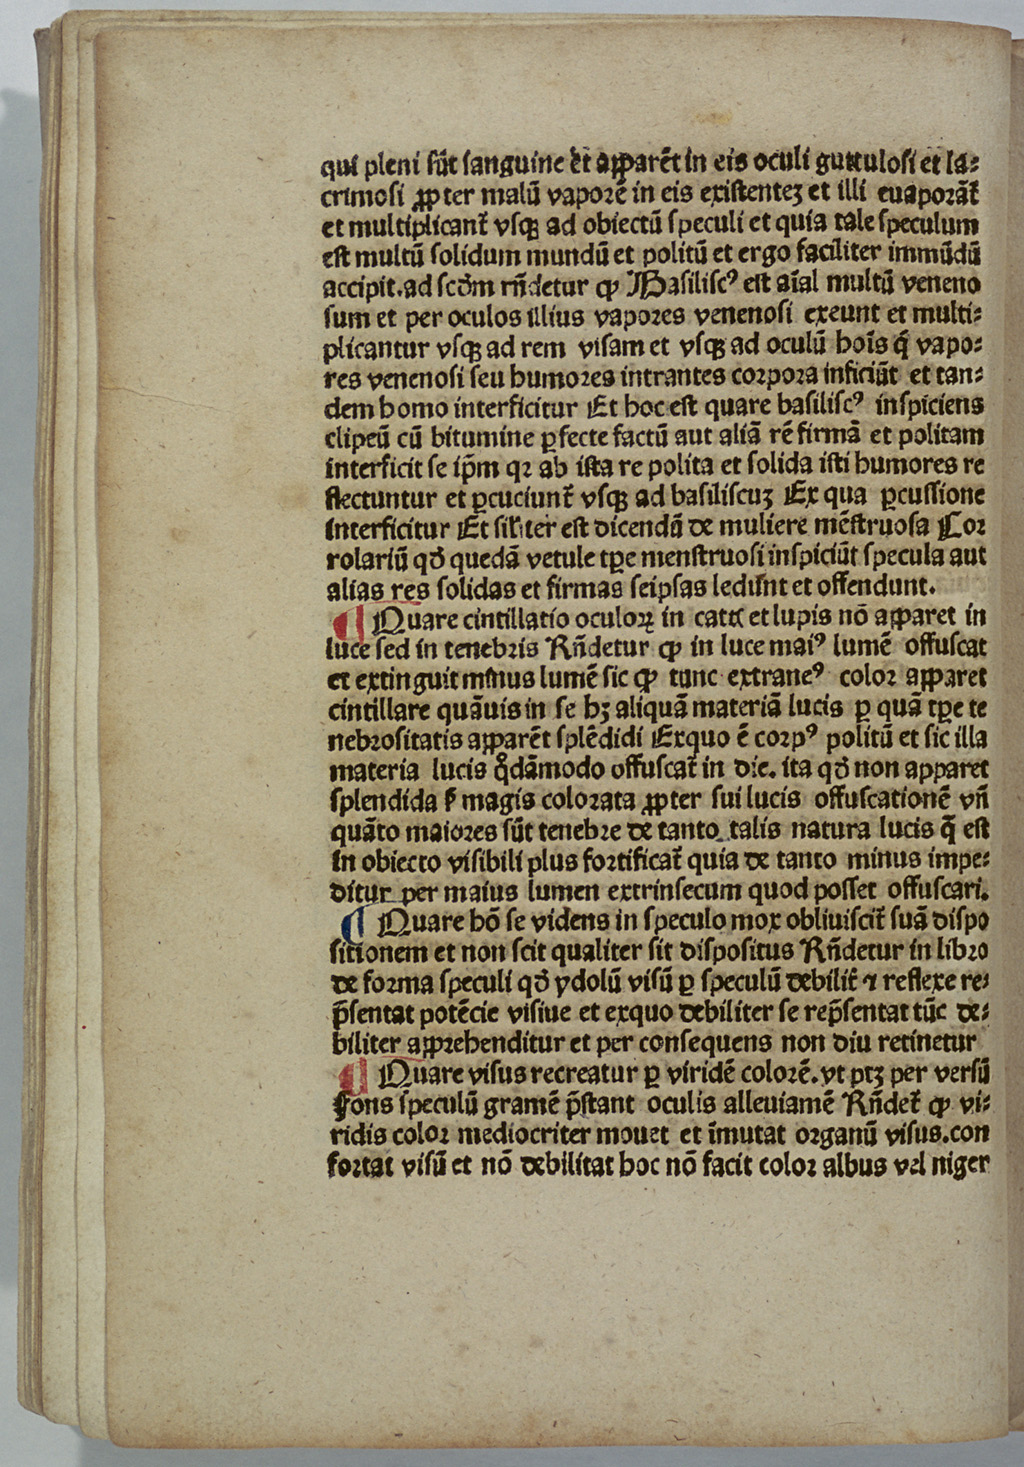 qui pleni sūt sanguine et apparēt in eis oculi guttulosi et la⸗
crimosi ꝓpter malū vaporē in eis existenteʒ et illi euaporāt̉
et multiplicant̉ vsqꝫ ad obiectū speculi et quia tale speculum
est multū solidum mundū et politū et ergo faciliter immūdū
accipit. ad scd̄m rn̄detur ꝙ Basiliscꝰ est aīal multū veneno
sum et per oculos illius vapores venenosi exeunt et multi⸗
plicantur vsqꝫ ad rem visam et vsqꝫ ad oculū hoīs q̄ vapo⸗
res venenosi seu humores intrantes corpora inficiūt et tan⸗
dem homo interficitur Et hoc est quare basiliscꝰ inspiciens
clipeū cū bitumine ꝑfecte factū aut aliā rē firmā et politam
interficit se ip̄m qꝛ ab ista re polita et solida isti humores re
flectuntur et ꝑcuciunt̉ vsqꝫ ad basiliscuʒ Ex qua ꝑcussione
interficitur Et sil̉iter est dicendū de muliere mēstruosa Cor
rolariū qd̄ quedā vetule tꝑe menstruosi inspiciūt specula aut
alias res solidas et firmas seipsas ledūnt et offendunt.
¶ Quare cintillatio oculoꝝ in cattꝭ et lupis nō apparet in
luce sed in tenebris Rn̄detur ꝙ in luce maiꝰ lumē offuscat
et extinguit minus lumē sic ꝙ tunc extraneꝰ color apparet
cintillare quāuis in se hʒ aliquā materiā lucis ꝑ quā tꝑe te
nebrositatis apparēt splēdidi Exquo ē corpꝰ politū et sic illa
materia lucis qͦdāmodo offuscat̉ in die. ita qd̄ non apparet
splendida sꝫ magis colorata ꝓpter sui lucis offuscationē vn̄
quāto maiores sūt tenebre de tanto talis natura lucis q̄ est
in obiecto visibili plus fortificat̉ quia de tanto minus impe⸗
ditur per maius lumen extrinsecum quod posset offuscari.
¶ Quare hō se videns in speculo mox obliuiscit̉ suā dispo
sitionem et non scit qualiter sit dispositus Rn̄detur in libro
de forma speculi qd̄ ydolū visū ꝑ speculū debilit̉ ⁊ reflexe re⸗
p̄sentat potēcie visiue et exquo debiliter se rep̄sentat tūc de⸗
biliter apprehenditur et per consequens non diu retinetur
¶ Quare visus recreatur ꝑ viridē colorē. vt ptʒ per versū
Fons speculū gramē p̄stant oculis alleuiamē Rn̄det̉ ꝙ vi⸗
ridis color mediocriter mouet et īmutat organū visus. con
fortat visū et nō debilitat hoc nō facit color albus vel niger